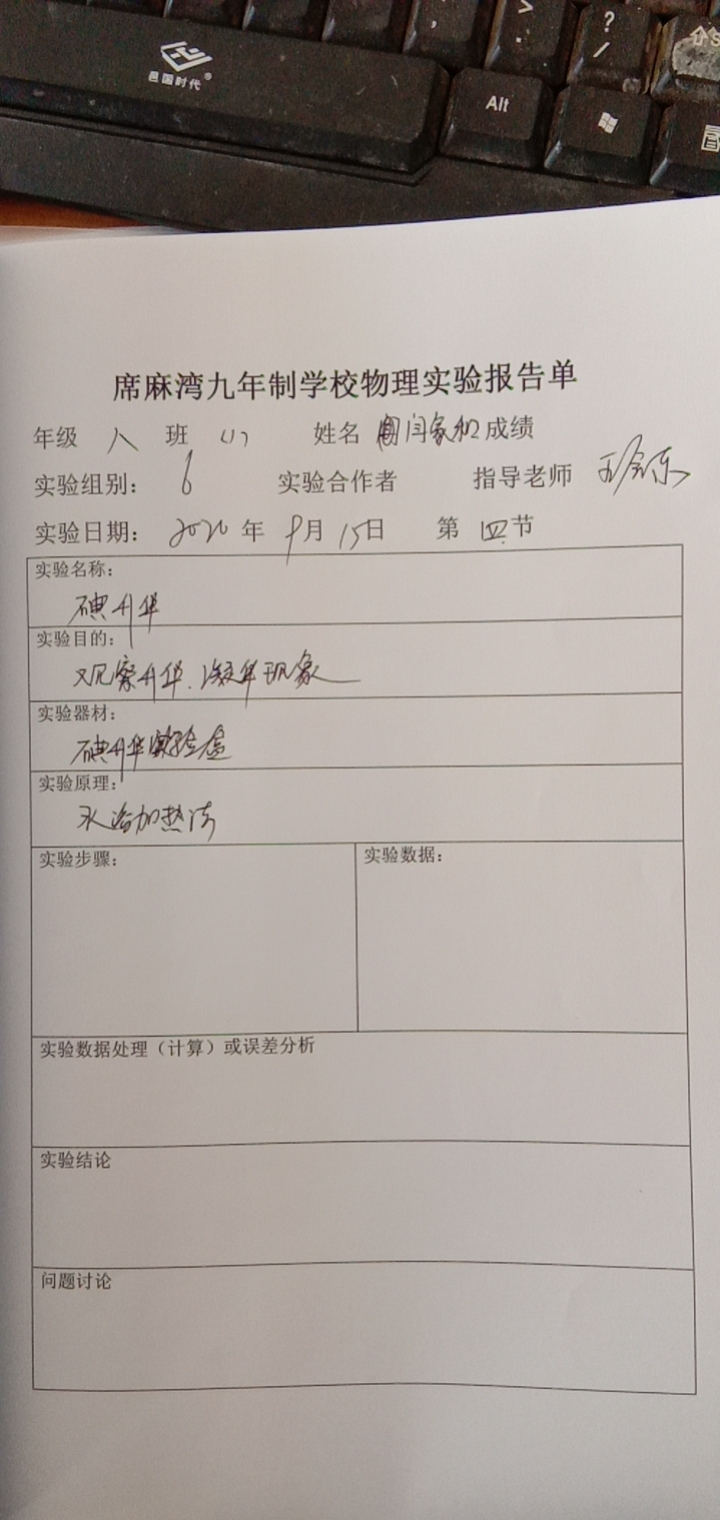 ,
>
.
?
/
邑国时代®
Alt
席麻湾九年制学校物理实验报告单
年级 八 班 (1) 姓名 闫家和 成绩
实验组别: 6 实验合作者 指导老师
实验日期: 2020 年 9月 15日 第 四节
实验名称:
碘升华
实验目的:
观察升华、凝华现象
实验器材:
碘升华实验盒
实验原理:
水浴加热法
实验步骤: 实验数据:
实验数据处理（计算）或误差分析
实验结论
问题讨论